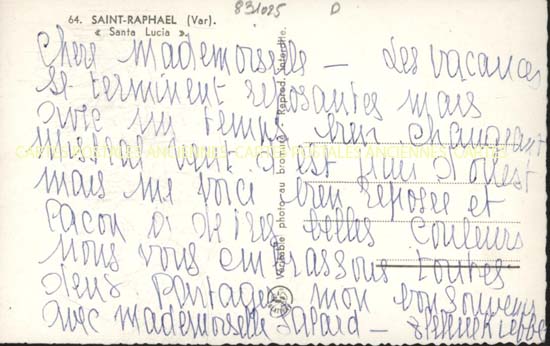 831085 D
64. SAINT-RAPHAEL (Var).
« Santa Lucia ».
Chère Mademoiselle – Les vacances
se terminent reposantes mais
avec un temps bien changeant
Mistral vent d'est puis d'ouest
mais me voici bien reposée et
Façon de très belles couleurs
Nous vous embrassons toutes
deux Partagez mon bon souvenir
avec Mademoiselle Salard –
Véritable photo au bromure - Reprod. interdite.
CARTES POSTALES ANCIENNES